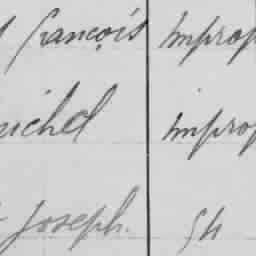 françois Improp
michel improp
Joseph. Sh